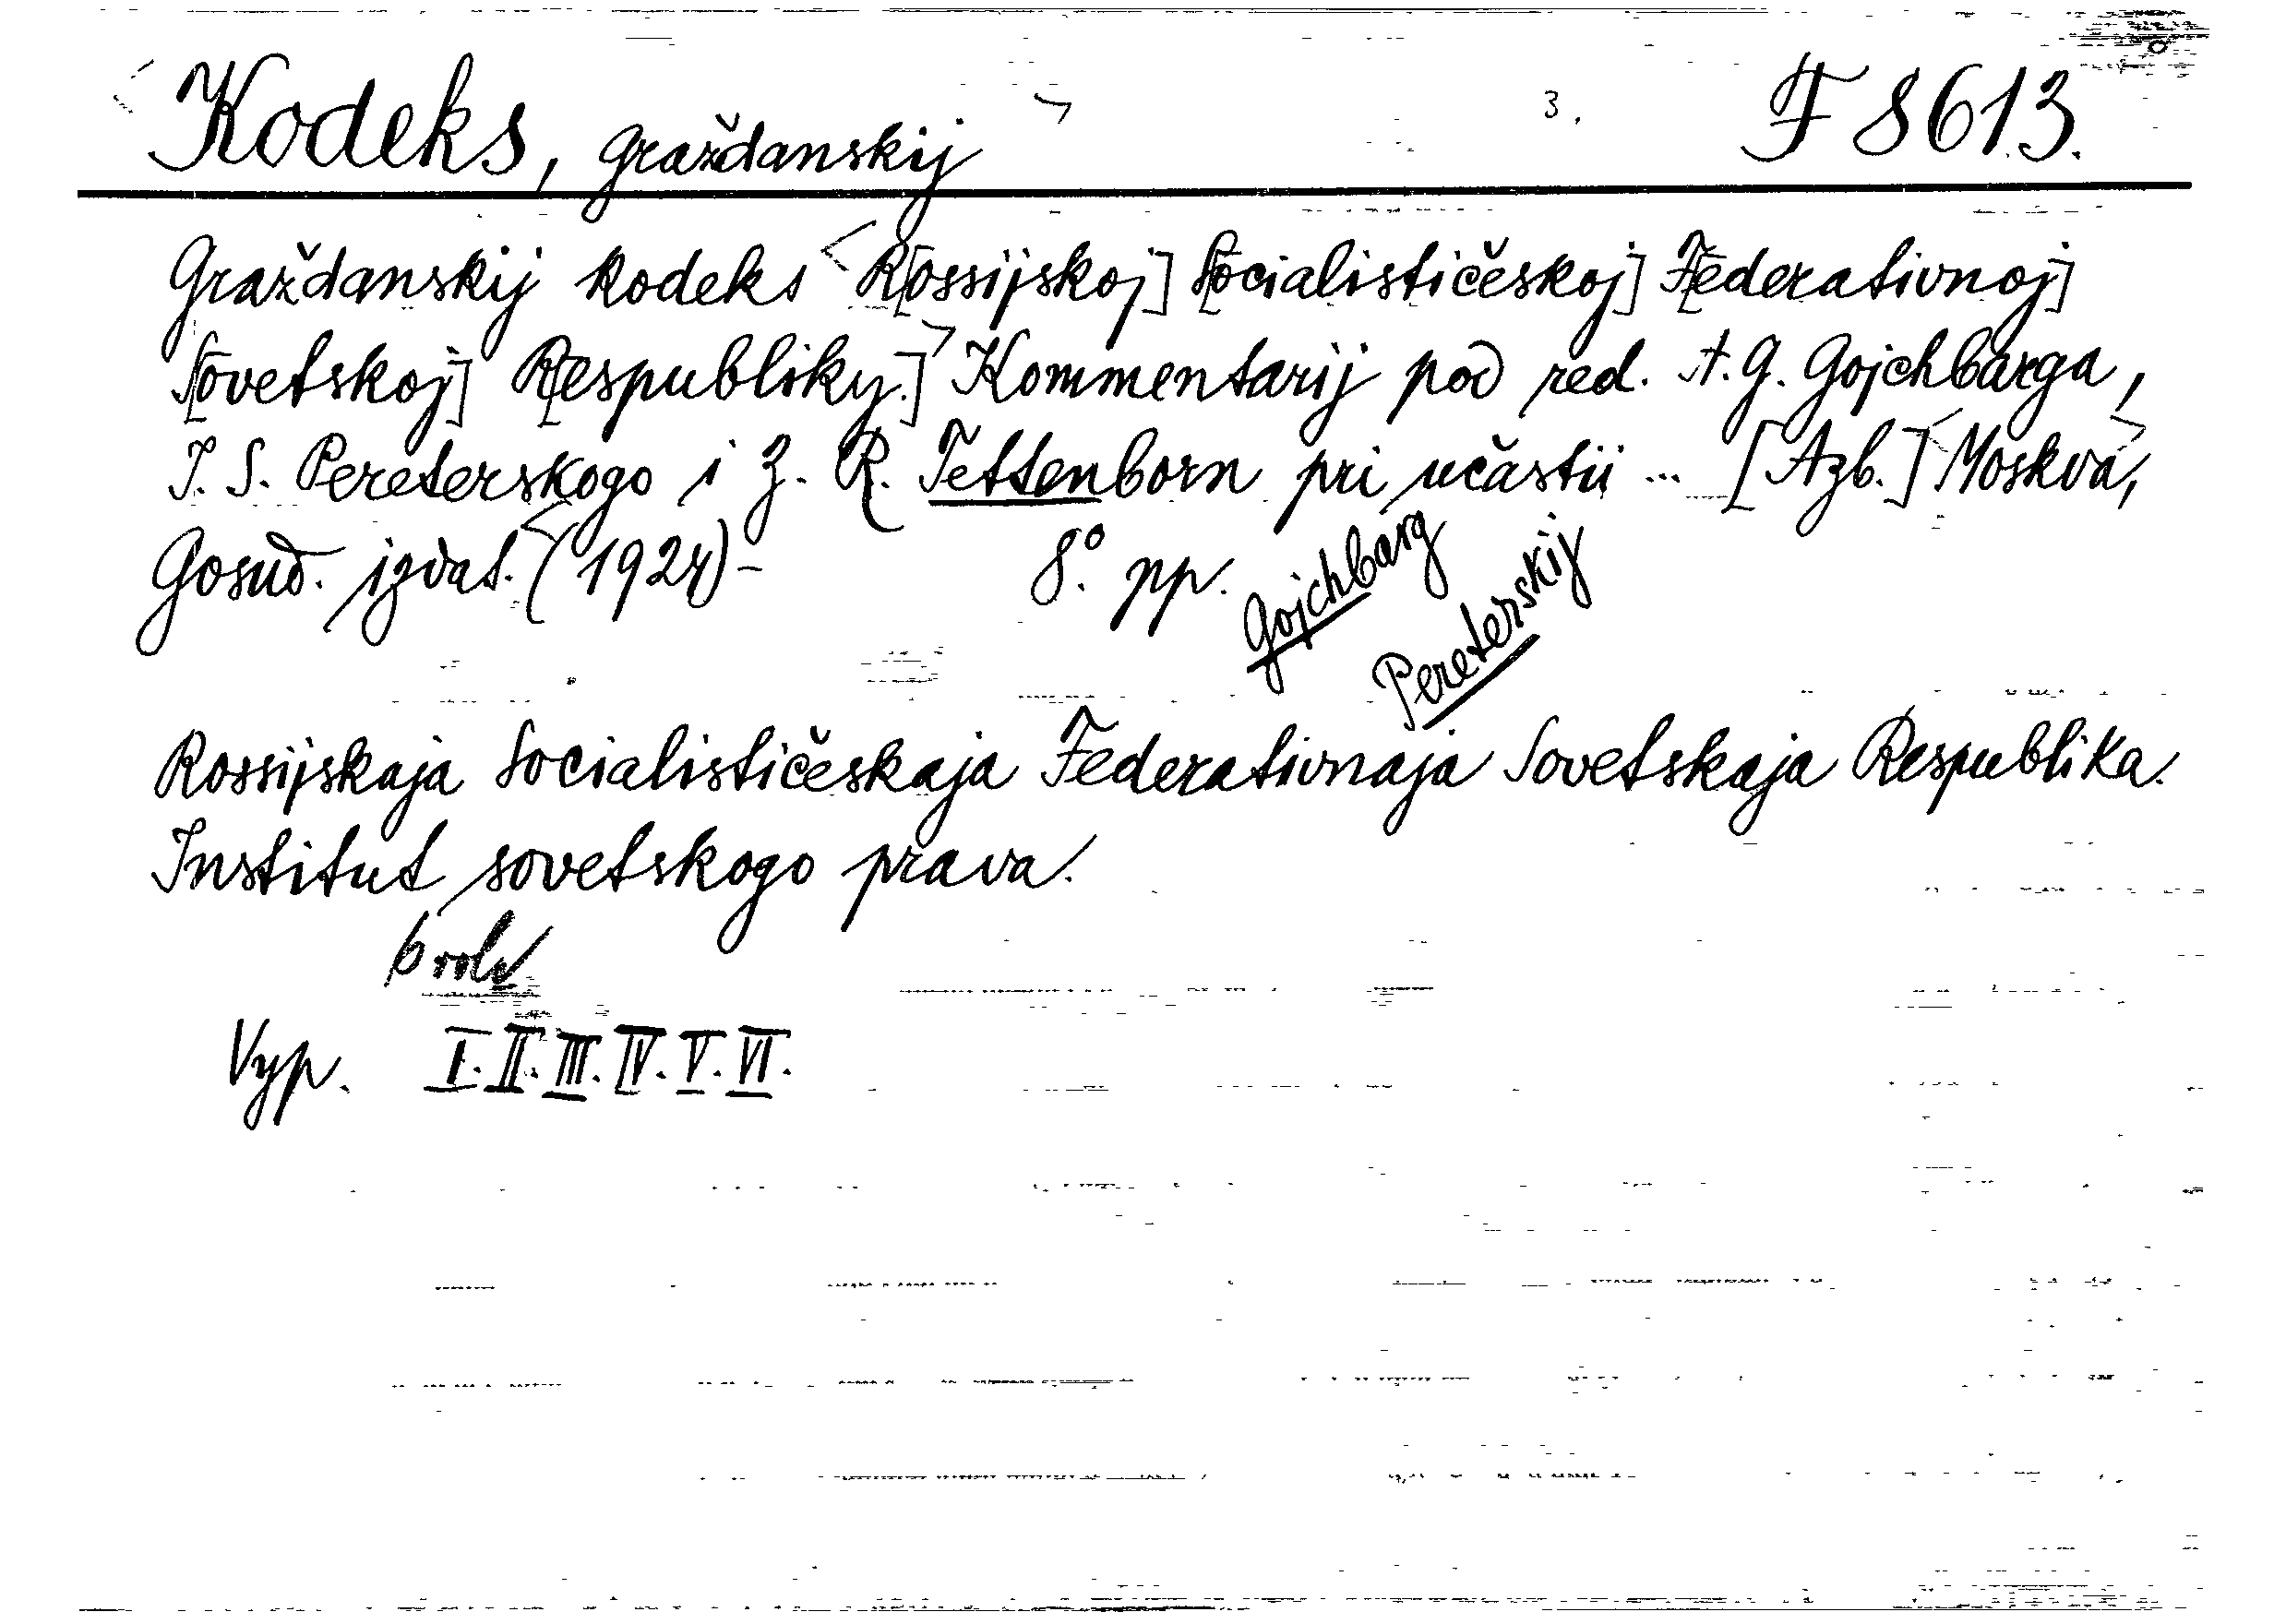 <Kodeks, graždanskij> 3. F 8613.
Graždanskij kodeks <R[ossijskoj] S[ocialističeskoj] F[ederativnoj]
S[ovetskoj] R[espubliky.]> Kommentarij pod red. A. G. Gojchbarga,
I. S. Pereterskogo i Z. R. Tettenborn pri učastii ... [Azb.] <Moskva>,
Gosud. izdat. <(1924)- 8º. pp.
Gojchbarg
Pereterskij
Rossijskaja Socialističeskaja Federativnaja Sovetskaja Respublika.
Institut sovetskogo prava.
6
Vyp. I. II. III. IV. V. VI.